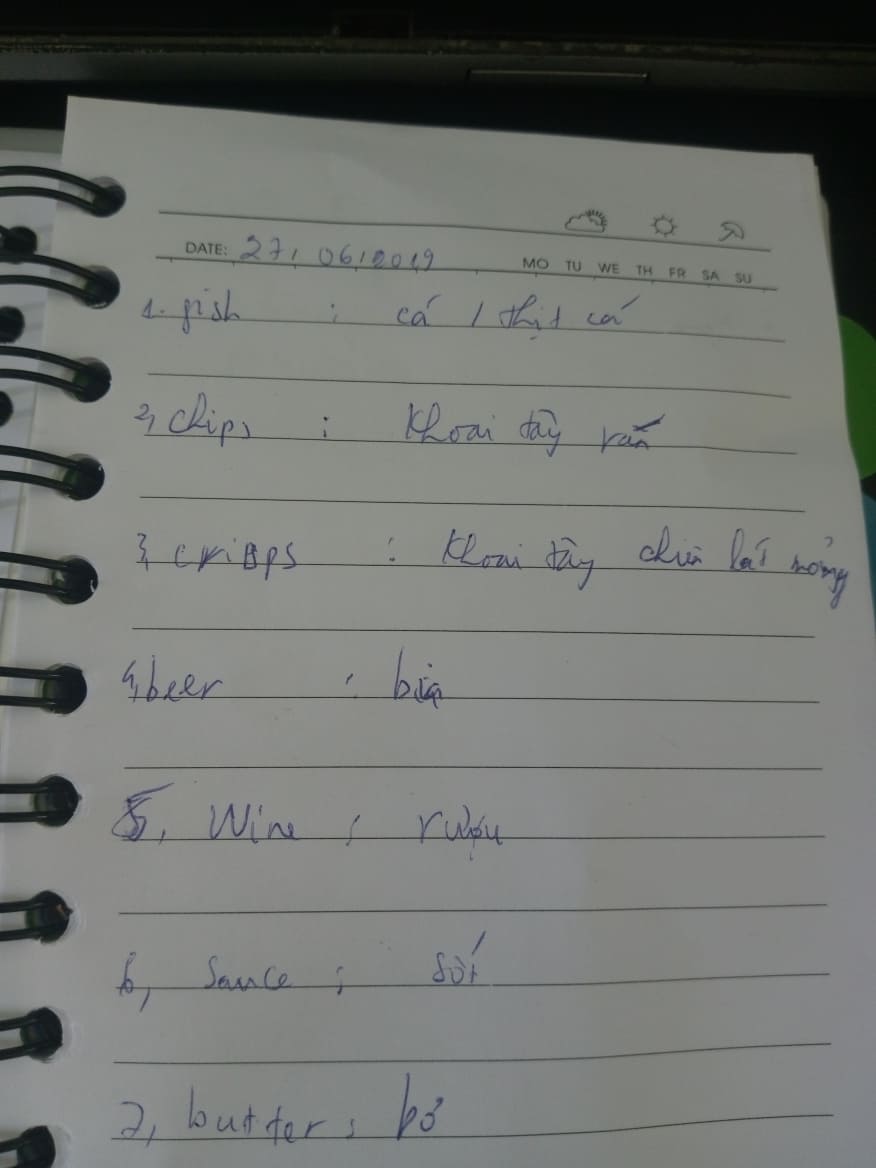 DATE: 27, 06, 2019 MO TU WE TH FR SA SU
1. fish : cá / thịt cá
2, chips : Khoai tây rán
3, crisps : Khoai tây chiên lát mỏng
4, beer : bia
5, Wine : rượu
6, Sauce : sốt
7, butter : bơ